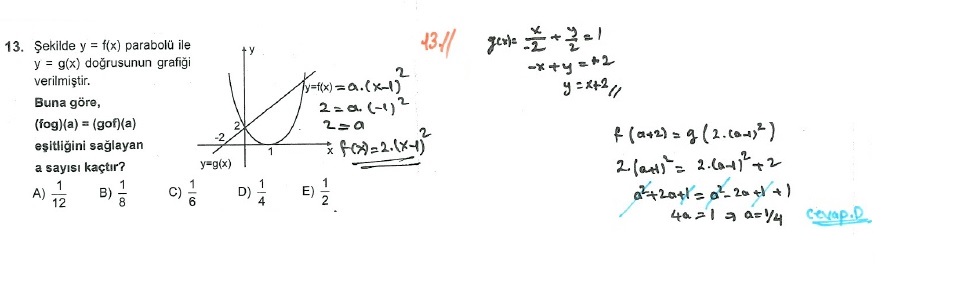 13. Şekilde y = f(x) parabolü ile
y = g(x) doğrusunun grafiği
verilmiştir.
Buna göre,
(fog)(a) = (gof)(a)
eşitliğini sağlayan
a sayısı kaçtır?
A) 1/12 B) 1/8 C) 1/6 D) 1/4 E) 1/2
y
y=f(x) = a.(x-1)²
2 = a.(-1)²
2 = a
f(x) = 2.(x-1)²
2
-2
1
x
y=g(x)
13.//
g(x)= x/-2 + y/2 = 1
-x + y = +2
y = x+2 //
f(a+2) = g(2.(a-1)²)
2.(a+1)² = 2.(a-1)² + 2
a²+2a+1 = a²-2a+1+1
4a = 1 ⇒ a = 1/4
Cevap.D